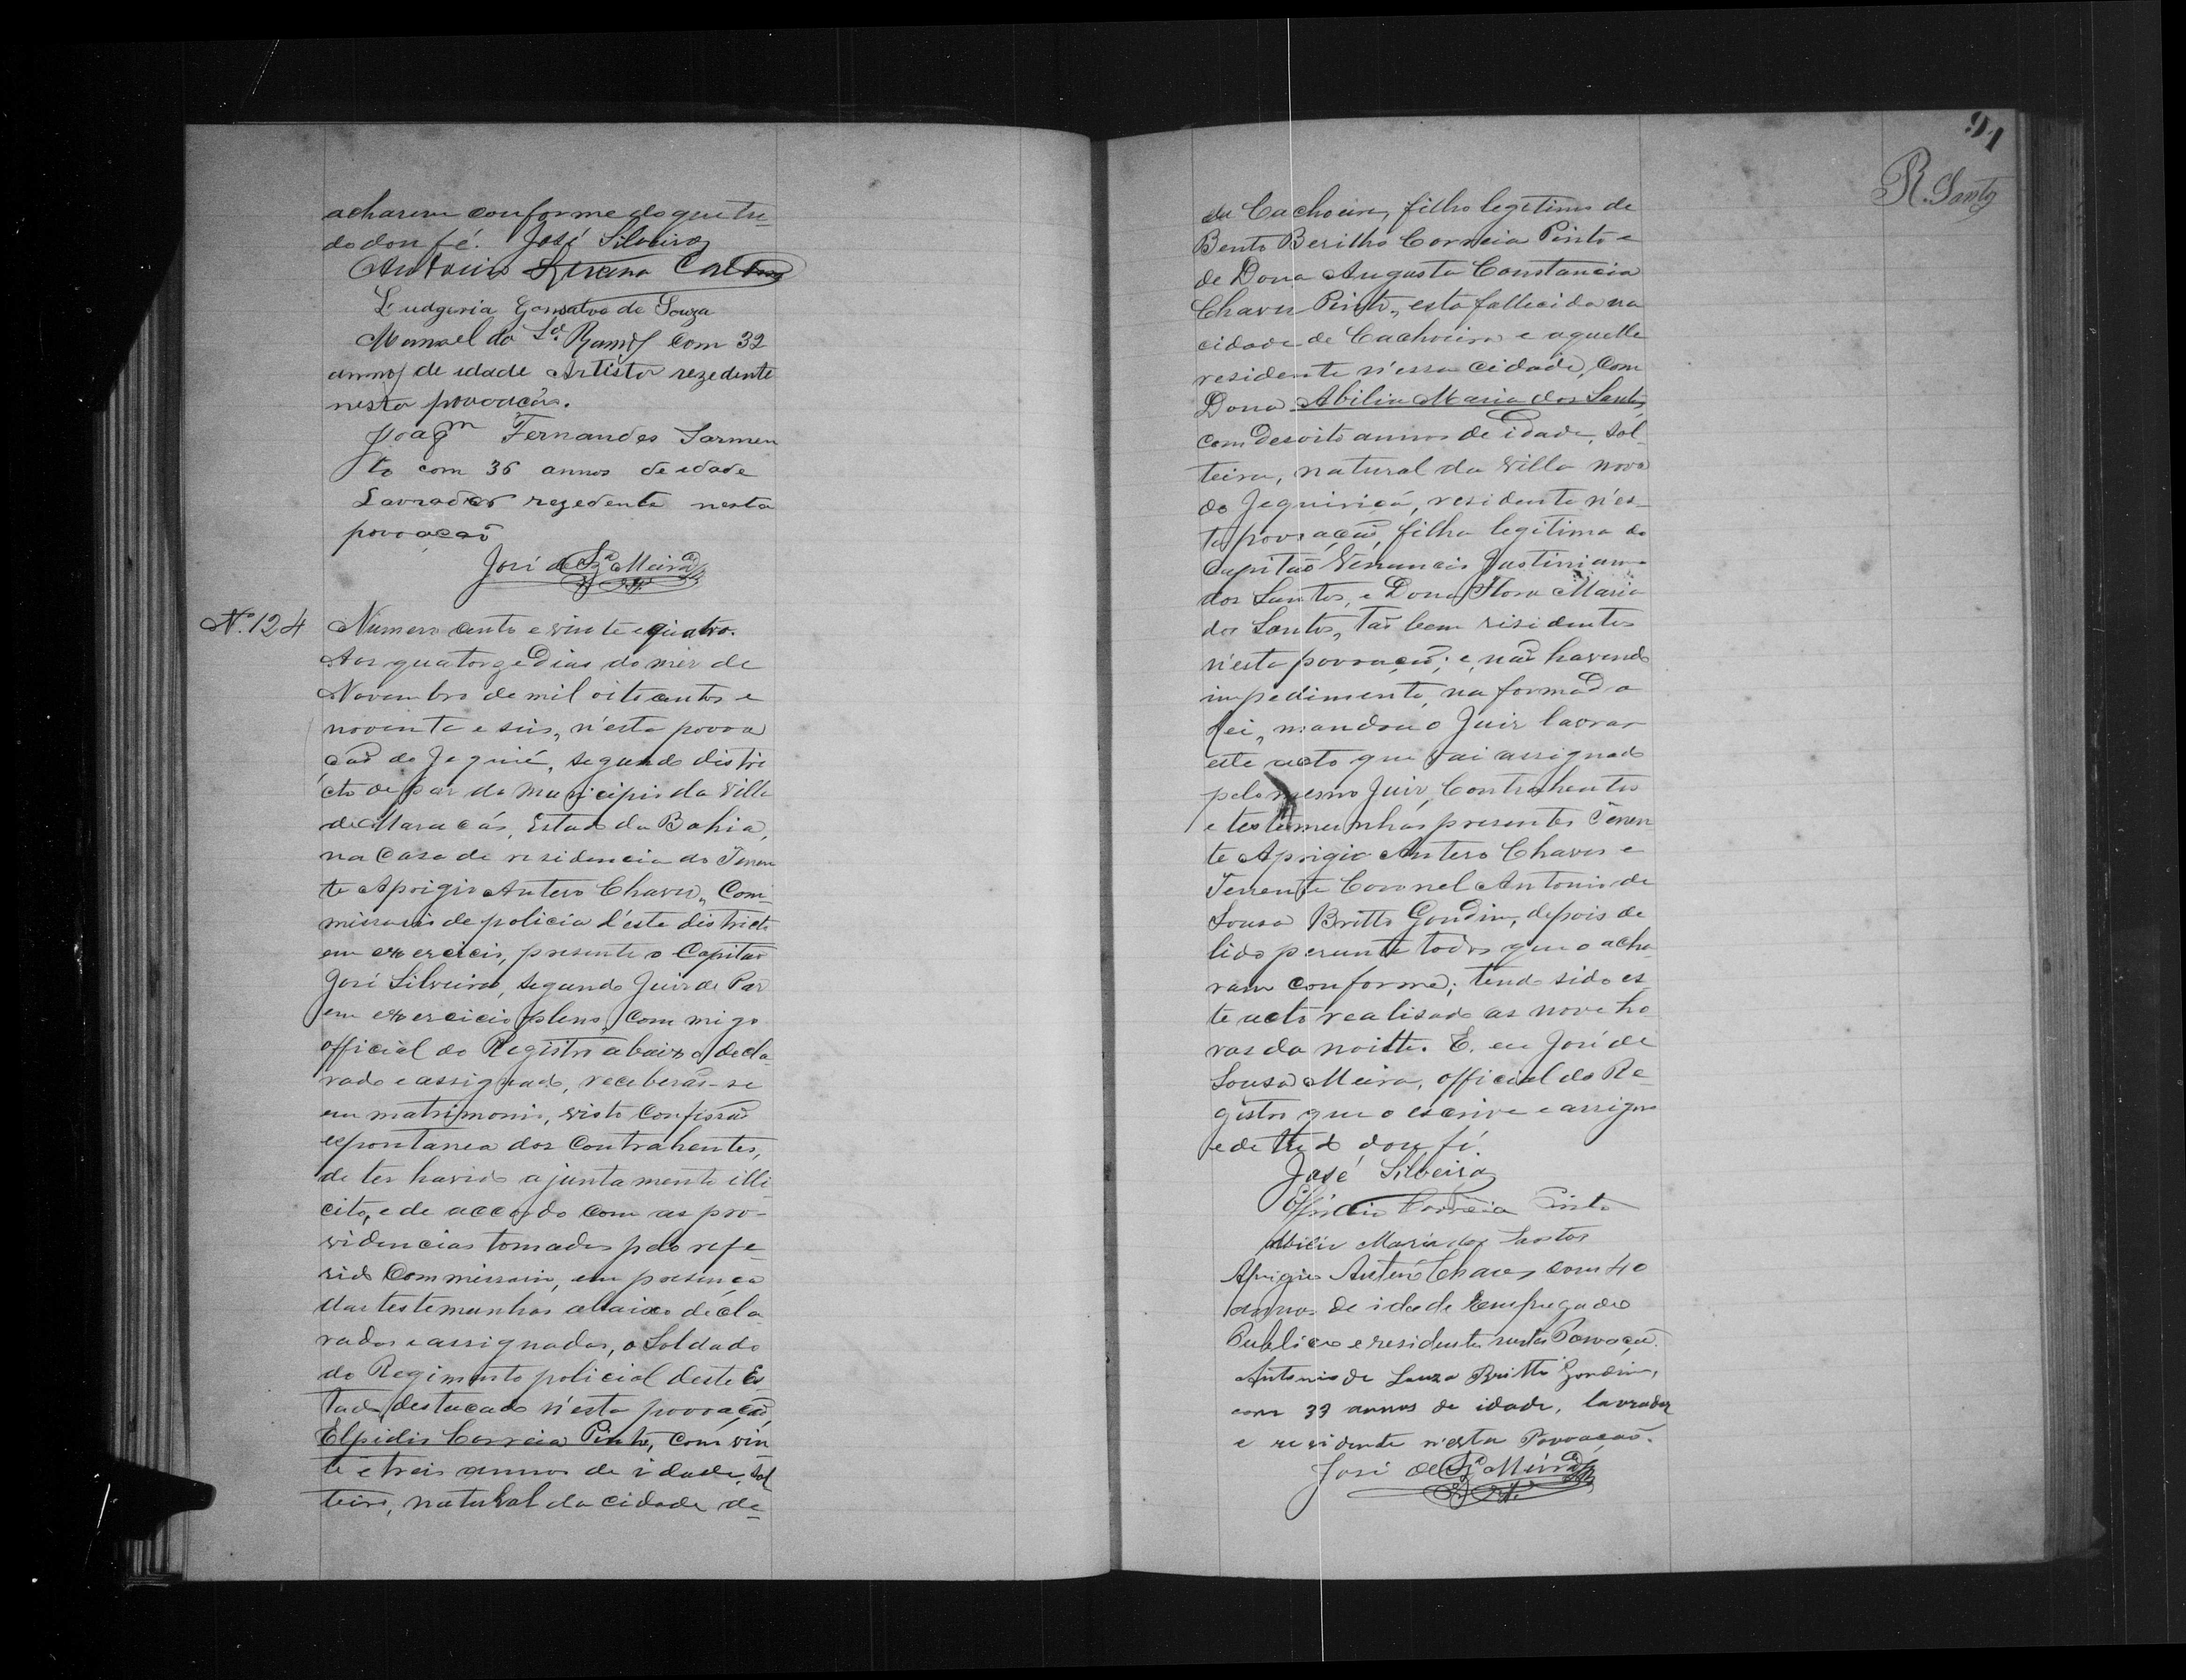 acharem conforme do que tu-
do dou fé. José Silveira
Antonio
Ludgeria Gonsalves de Souza
Manoel do Ramos com 32
annos de idade Artista rezedente
nesta povoação.
Joaqm Fernandes Sarmen
to com 36 annos de idade
Lavrador rezedente nesta
povoação
José de Sza Meira
N. 124
Numero cento e vinte e quatro.
Aos quatorze dias do mez de
Novembro de mil oito centos e
noventa e seis, n'esta povoa
ção de Jequié, segundo distri
cto de paz do Municipio da Villa
de Maracás, Estado da Bahia,
na casa de residencia do Tenen
te Aprigio Antero Chaves, Com-
missario de policia d'este districto
em exercicio, presente o Capitão
José Silveira, segundo Juiz de Paz
em exercicio pleno, commigo
official do Registro abaixo decla
rado e assignado, receberão-se
em matrimonio, visto confissão
espontanea dos contrahentes,
de ter havido ajuntamento illi-
cito, e de accordo com as pro-
videncias tomadas pelo refe-
rido Commissario, em presença
das testemunhas abaixo decla
radas e assignadas, o Soldado
do Regimento policial deste Es-
tado, destacado n'esta povoação,
Elpidio Correia Pinto, com vin
te e treis annos de idade, sol
teiro, natural da cidade de-
91
R. Santos
da Cachoeira, filho legitimo de
Bento Berilho Correia Pinto e
de Dona Augusta Constancia
Chaves Pinto, esta fallecida na
cidade de Cachoeira e aquelle
residente n'essa cidade, com
Dona Abilia Maria dos Santos,
com desoito annos de idade, sol-
teira, natural da Villa nova
de Jequiriçá, residente n'es-
ta povoação, filha legitima do
Capitão Venancio Justiniano
dos Santos, e Dona Flora Maria
dos Santos, tão bem residentes
n'esta povoação; e não havendo
impedimento, na forma da
lei, mandou o Juiz lavrar
este acto que vai assignado
pelo mesmo Juiz, Contrahentes
e testemunhas presentes Tenen
te Aprigio Antero Chaves e
Tenente Coronel Antonio de
Sousa Britto Gondim, depois de
lido perante todos que o acha
ram conforme; tendo sido es
te acto realisado as nove ho
ras da noitte. E. eu José de
Sousa Meira, official do Re-
gistro que o escrive e assigno
e de tudo dou fé.
José Silveira
Elpidio Correia Pinto
Abilia Maria dos Santos
Aprigio Antero Chaves com 40
annos de idade Empregado
Publico e residente nesta Povoação.
Antonio de Souza Britto Gondim,
com 39 annos de idade, lavrador
e residente n'esta Povoação.
José de Sza Meira